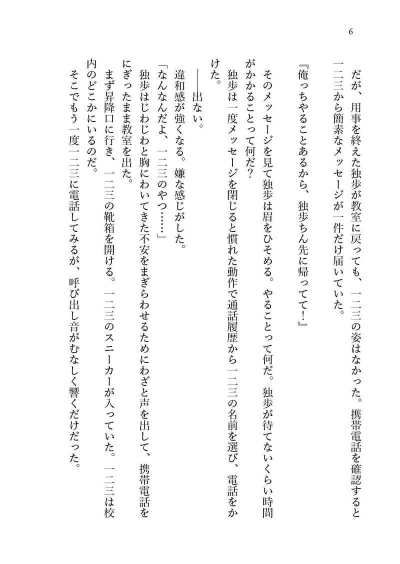 6
だが、用事を終えた独歩が教室に戻っても、一二三の姿はなかった。携帯電話を確認すると
一二三から簡素なメッセージが一件だけ届いていた。
『俺っちやることあるから、独歩ちん先に帰ってて！』
そのメッセージを見て独歩は眉をひそめる。やることって何だ。独歩が待てないくらい時間
がかかることって何だ？
独歩は一度メッセージを閉じると慣れた動作で通話履歴から一二三の名前を選び、電話をか
けた。
――出ない。
違和感が強くなる。嫌な感じがした。
「なんなんだよ、一二三のやつ……」
独歩はじわじわと胸にわいてきた不安をまぎらわせるためにわざと声を出して、携帯電話を
にぎったまま教室を出た。
まず昇降口に行き、一二三の靴箱を開ける。一二三のスニーカーが入っていた。一二三は校
内のどこかにいるのだ。
そこでもう一度一二三に電話してみるが、呼び出し音がむなしく響くだけだった。